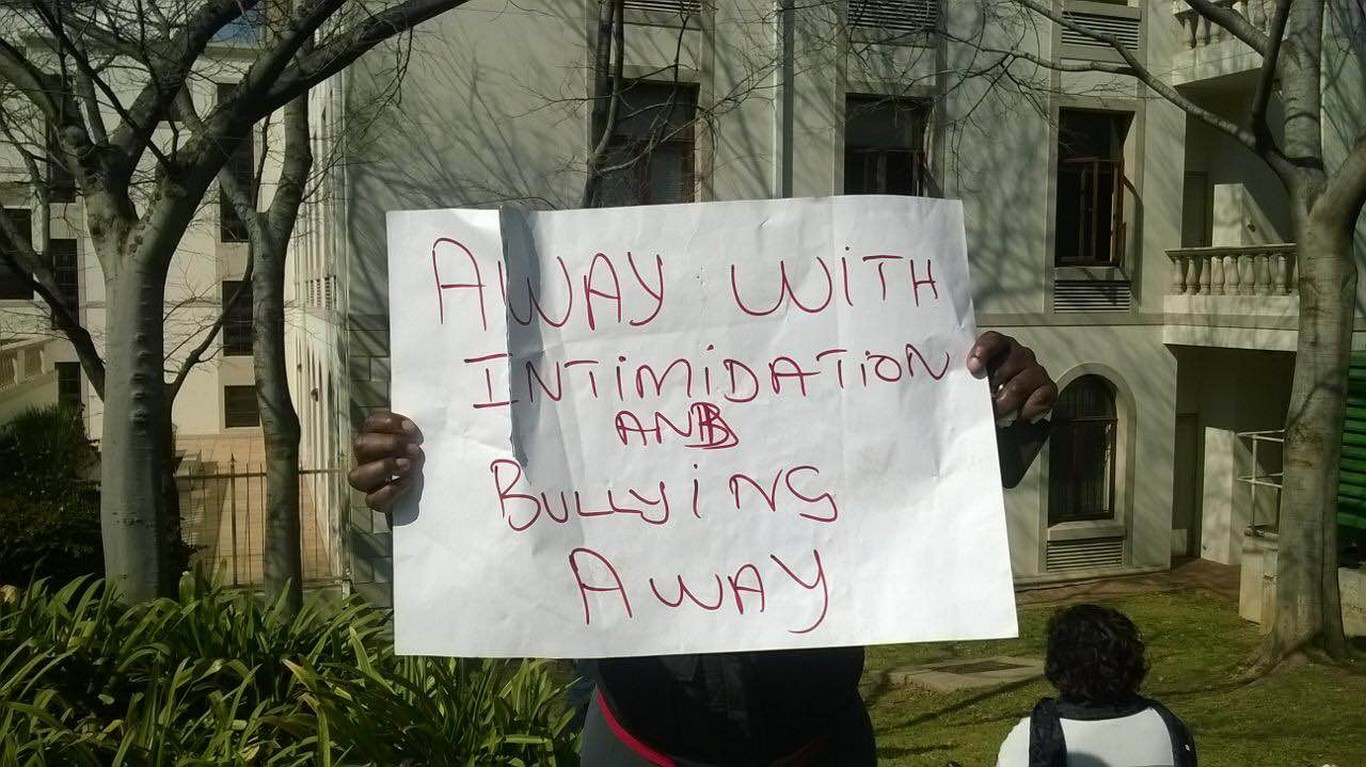 AWAY WITH
INTIMIDATION
AND
BULLYING
AWAY